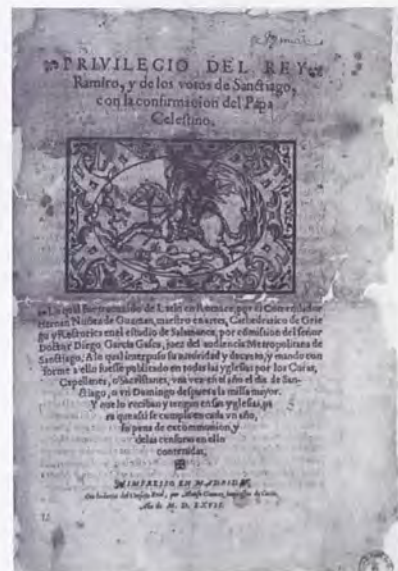 PRIVILEGIO DEL REY
Ramiro, y de los votos de Sanctiago,
con la confirmacion del Papa
Celestino.
Lo qual fue tornado de Latin en Romãce, por el Comendador
Hernan Nuñez de Guzman, maestro en artes, Cathedratico de Grie
go y Rectorica en el estudio de Salamanca, por comision del señor
Doctor Diego Garcia Gasca, juez del audiencia Metropolitana de
Sanctiago, A lo qual interpuso su autoridad y decreto, y mando con
forme a ello fuesse publicado en todas las yglesias por los Curas,
Capellanes, o Sacristanes, vna vez en el año el dia de San-
ctiago, o vn Domingo despues a la missa mayor.
Y que lo reciban y tengan en sus yglesias, pa
ra que assi se cumpla en cada vn año,
so pena de excommunion, y
de las censuras en ello
contenidas,
IMPRESSO EN MADRID
Con licencia del Consejo Real, por Alonso Gomez, Impressor de Corte,
Año de M. D. LXVII.